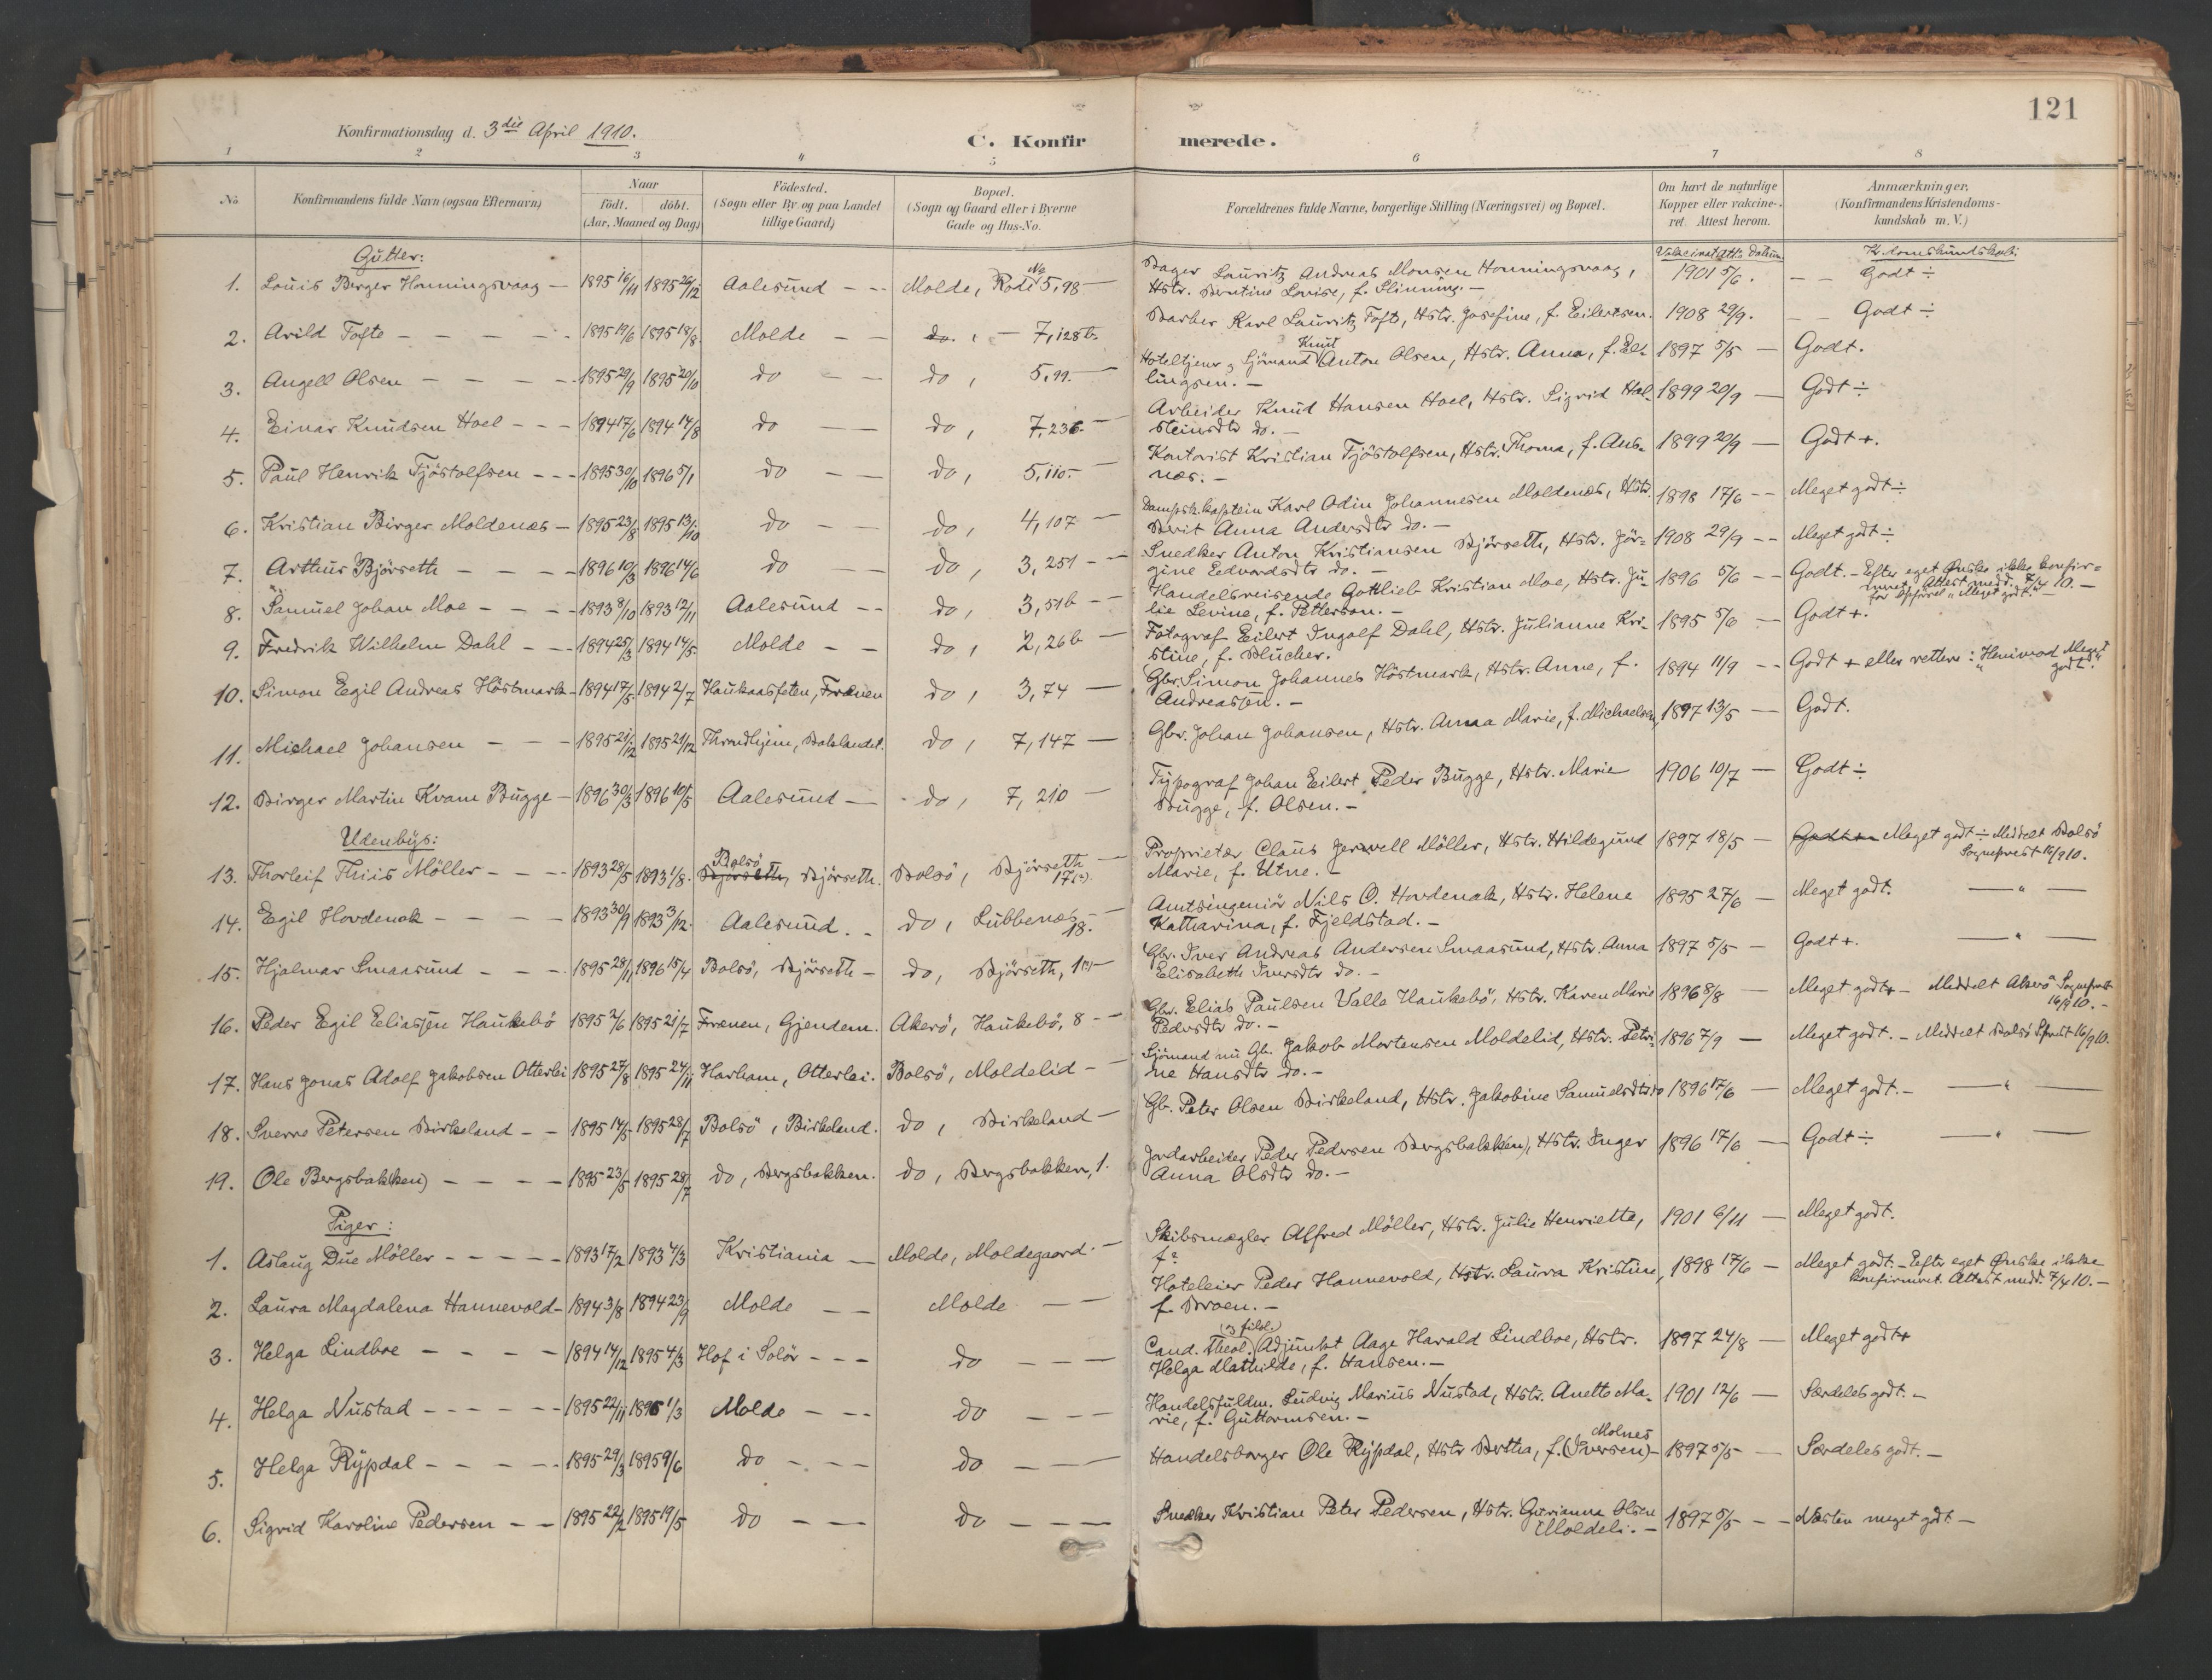 121
Konfirmationsdag d. 3die April 1910.
C. Konfirmerede.
1 2 3 4 5 6 7 8
No. Konfirmandens fulde Navn (ogsaa Efternavn) Naar födt. döbt. (Aar, Maaned og Dag) Födested. (Sogn eller By og paa Landet tillige Gaard) Bopæl. (Sogn og Gaard eller i Byerne Gade og Hus-No. Forældrenes fulde Navne, borgerlige Stilling (Næringsvei) og Bopæl. Om havt de naturlige Kopper eller vakcineret. Attest herom. Anmærkninger, (Konfirmandens Kristendomskundskab m. V.)
Gutter: Vakcinat. Att's Datum Kr.domskundskab:
1. Louis Berger Honningsvaag 1895 16/11 1895 26/12 Aalesund Molde, Rode 5, No 98 Bager Lauritz Andreas Monsen Honningsvaag, 1901 5/6. Godt ÷
Hstr. Berntine Lovise, f. Slinning.
2. Arild Tofte 1895 19/6 1895 18/8 Molde do. 7, 128 b. Barber Karl Lauritz Toft, Hstr. Josefine, f. Eilertsen. 1908 29/9. Godt ÷
3. Angell Olsen 1895 29/9 1895 20/10 do do, 5, 99. Hoteltjener, Sjömand Knut Anton Olsen, Hstr. Anna, f. El- 1897 5/5 Godt.
lingsen.
4. Einar Knudsen Hoel 1894 17/6 1894 14/8 do do, 7, 236. Arbeider Knud Hansen Hoel, Hstr. Sigrid Hal- 1899 20/9 Godt ÷
steinsdtr do.
5. Paul Henrik Fjöstolfsen 1895 30/10 1896 5/1 do do, 5, 110. Kontorist Kristian Fjöstolfsen, Hstr. Thoma, f. Aus- 1899 20/9 Godt +.
nes.
6. Kristian Birger Moldenæs 1895 23/8 1895 13/10 do do, 4, 107 Dampsk.kaptein Karl Odin Johannesen Moldenæs, Hstr. 1898 17/6 Meget godt ÷
Berit Anna Andersdtr do.
7. Arthur Björseth 1896 10/3 1896 14/6 do do, 3, 251 Snedker Anton Kristiansen Björseth, Hstr. Jör- 1908 29/9 Meget godt ÷
gine Edvardsdtr do.
8. Samuel Johan Moe 1893 8/10 1893 12/11 Aalesund do, 3, 51 b Handelsreisende Gottlieb Kristian Moe, Hstr. Ju- 1896 5/6 Godt. Efter eget Ønske ikke konfir-
lie Levine, f. Petterson. meret. Attest medd. 7/4 10.
9. Fredrik Wilhelm Dahl 1894 25/3 1894 14/5 Molde do, 2, 26 b Fotograf Eilert Ingolf Dahl, Hstr. Julianne Kri- 1895 5/6 Godt +.
stine, f. Blücher.
10. Simon Egil Andreas Höstmark 1894 17/5 1894 2/7 Haukaasfeten, Frænen do, 3, 74 Gbr. Simon Johannes Höstmark, Hstr. Anne, f. 1894 11/9 Godt + eller rettere: Henimod „Meget godt."
Andreassen.
11. Michael Johansen 1895 21/12 1895 21/12 Throndhjem, Baklandet. do, 7, 147 Gbr. Johan Johansen, Hstr. Anna Marie, f. Michaelsen, 1897 13/5 Godt.
12. Birger Martin Kvam Bugge 1896 30/3 1896 10/5 Aalesund do, 7, 210 Typograf Johan Eilert Peder Bugge, Hstr. Marie 1906 10/7 Godt ÷
Bugge, f. Olsen.
Udenbys:
13. Thorleif Thiis Möller 1893 28/5 1893 1/8. Bolsö, Björseth. Bolsö, Björseth 17 Proprietær Claus Jerwell Möller, Hstr. Hildegund 1897 18/5 Meget godt ÷ Meddelt Bolsö
Marie, f. Utne. Sogneprest 16/9 10.
14. Egil Hovdenak 1893 30/9 1893 3/12. Aalesund. do, Lubbenæs 18. Amtsingeniör Nils O. Hovdenak, Hstr. Helene 1895 27/6 Meget godt. "
Katharina, f. Fjeldstad.
15. Hjalmar Smaasund 1895 28/11 1896 15/4 Bolsö, Björseth do, Björseth, 1 Gbr. Iver Andreas Andersen Smaasund, Hstr. Anna 1897 5/5 Godt +. "
Elisabeth Iversdtr do.
16. Peder Egil Eliassen Haukebö 1895 2/6 1895 21/7 Frænen, Gjendem. Akerö, Haukebö, 8 Gbr. Elias Paulsen Valle Haukebö, Hstr. Karen Marie 1896 8/8 Meget godt + Meddelt Akerö Sogneprest 16/9 10.
Pedersdtr do.
17. Hans Jonas Adolf Jakobsen Otterlei 1895 27/8 1895 24/11 Harham, Otterlei. Bolsö, Moldelid Sjömand nu Gb. Jakob Mortensen Moldelid, Hstr. Petri- 1896 7/9 Meget godt. Meddelt Bolsö S.prest 16/9 10.
ne Hansdtr do.
18. Sverre Petersen Birkeland 1895 14/5 1895 28/7 Bolsö, Birkeland. do, Birkeland Gb. Peter Olsen Birkeland, Hstr. Jakobine Samuelsdtr do 1896 17/6 Meget godt. "
19. Ole Bergsbak(ken) 1895 23/5 1895 28/7 do, Bergsbakken. do, Bergsbakken, 1. Jordarbeider Peder Pedersen Bergsbak(ken), Hstr. Inger 1896 17/6 Godt ÷ "
Anna Olsdtr do.
Piger:
1. Aslaug Due Möller 1893 17/2 1893 4/3 Kristiania Molde, Moldegaard. Skibsmægler Alfred Möller, Hstr. Julie Henriette, 1901 6/11 Meget godt.
f.?
2. Laura Magdalena Hannevold 1894 3/8 1894 23/9 Molde Molde Hoteleier Peder Hannevold, Hstr. Laura Kristine, 1898 17/6 Meget godt. Efter eget Ønske ikke
f. Broen. konfirmeret. Attest medd. 7/4 10.
3. Helga Lindboe 1894 14/12 1895 4/3 Hof i Solör do Cand. Theol. (og filol.) Adjunkt Aage Harald Lindboe, Hstr. 1897 24/8 Meget godt +
Helga Mathilde, f. Hansen.
4. Helga Nustad 1895 22/11 1896 1/3 Molde do Handelsfuldm. Ludvig Marius Nustad, Hstr. Anette Ma- 1901 12/6 Særdeles godt.
rie, f. Guttormsen.
5. Helga Rypdal 1895 29/3 1895 9/6 do do Handelsborger Ole Rypdal, Hstr Bertha, f. (Iversen) Molnes 1897 5/5 Særdeles godt.
6. Sigrid Karoline Pedersen 1895 22/2 1895 19/5 do do Snedker Kristian Peter Pedersen, Hstr. Gurianna Olsen 1897 5/5 Næsten meget godt.
Moldeli.